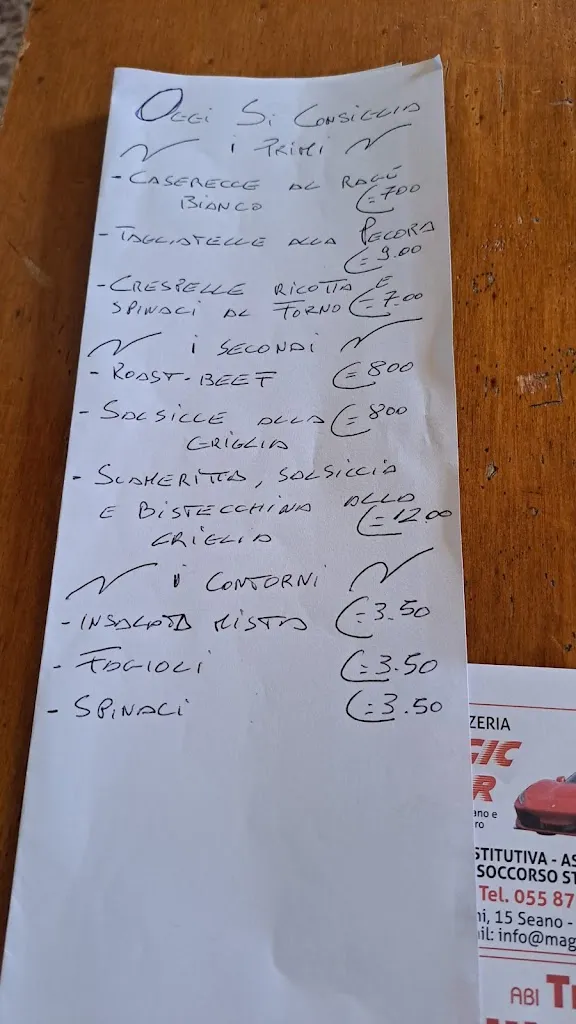 Oggi Si Consiglia
i Primi
- Caserecce al Ragù
Bianco €=7.00
- Tagliatelle alla Pecora
€=9.00
- Crespelle ricotta e
spinaci al forno €=7.00
i Secondi
- Roast-beef €=8.00
- Salsicce alla €=8.00
griglia
- Scameritta, salsiccia
e bistecchina alla
griglia €=12.00
i Contorni
- Insalata mista €=3.50
- Fagioli €=3.50
- Spinaci €=3.50
ZERIA
GIC
R
ano e
ro
STITUTIVA - AS
SOCCORSO ST
Tel. 055 87
ni, 15 Seano -
ail: info@mag
ABI